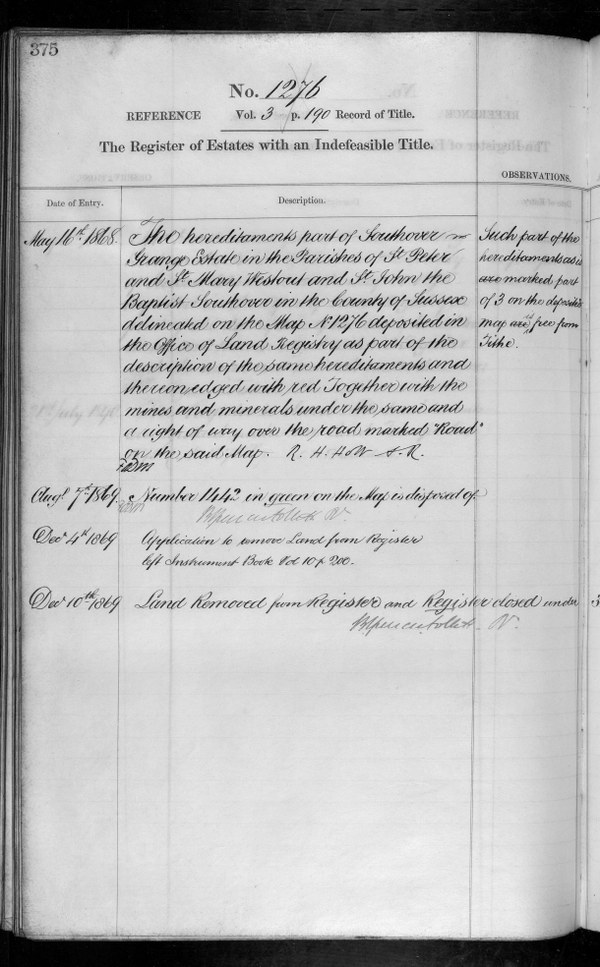 375
No. 1276
REFERENCE Vol. 3 p. 190 Record of Title.
The Register of Estates with an Indefeasible Title.
OBSERVATIONS.
Date of Entry.
Description.
May 16th 1868
The hereditaments part of Southover
Grange Estate in the Parishes of St Peter
and St Mary Westout and St John the
Baptist Southover in the County of Sussex
delineated on the Map No 1276 deposited in
the Office of Land Registry as part of the
description of the same hereditaments and
thereon edged with red Together with the
mines and minerals under the same and
a right of way over the road marked "Road"
on the said Map. R. H. H
Such part of the
hereditaments as is
are marked part
of 3 on the deposited
map are free from
Tithe.
Augt 7th 1869 Number 1442 in green on the Map is disposed of.
Decr 4th 1869 Application to remove Land from Register
left Instrument Book Vol 10 p 200.
Decr 10th 1869 Land Removed from Register and Register closed under 3